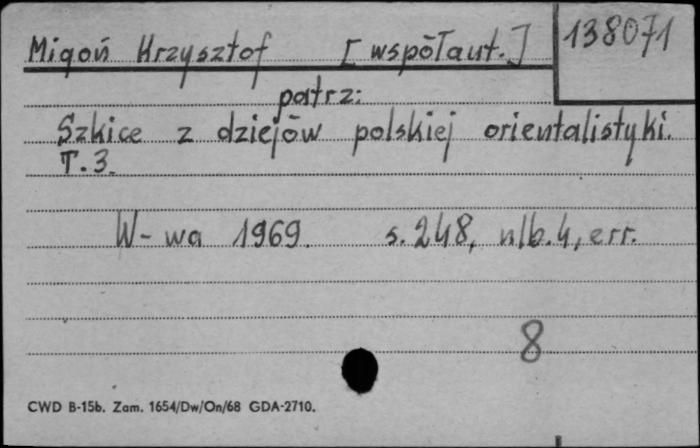 Migoń Krzysztof [współaut.] 138071
patrz:
Szkice z dziejów polskiej orientalistyki.
T.3.
W-wa 1969. s. 248, nlb. 4, err.
8
CWD B-15b. Zam. 1654/Dw/On/68 GDA-2710.